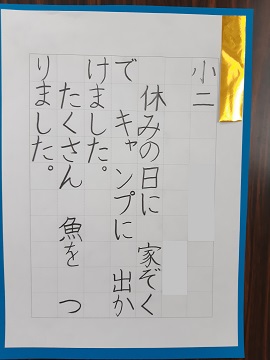 小二
休みの日に　家ぞく
で　キャンプに　出か
けました。
たくさん　魚を　つ
りました。